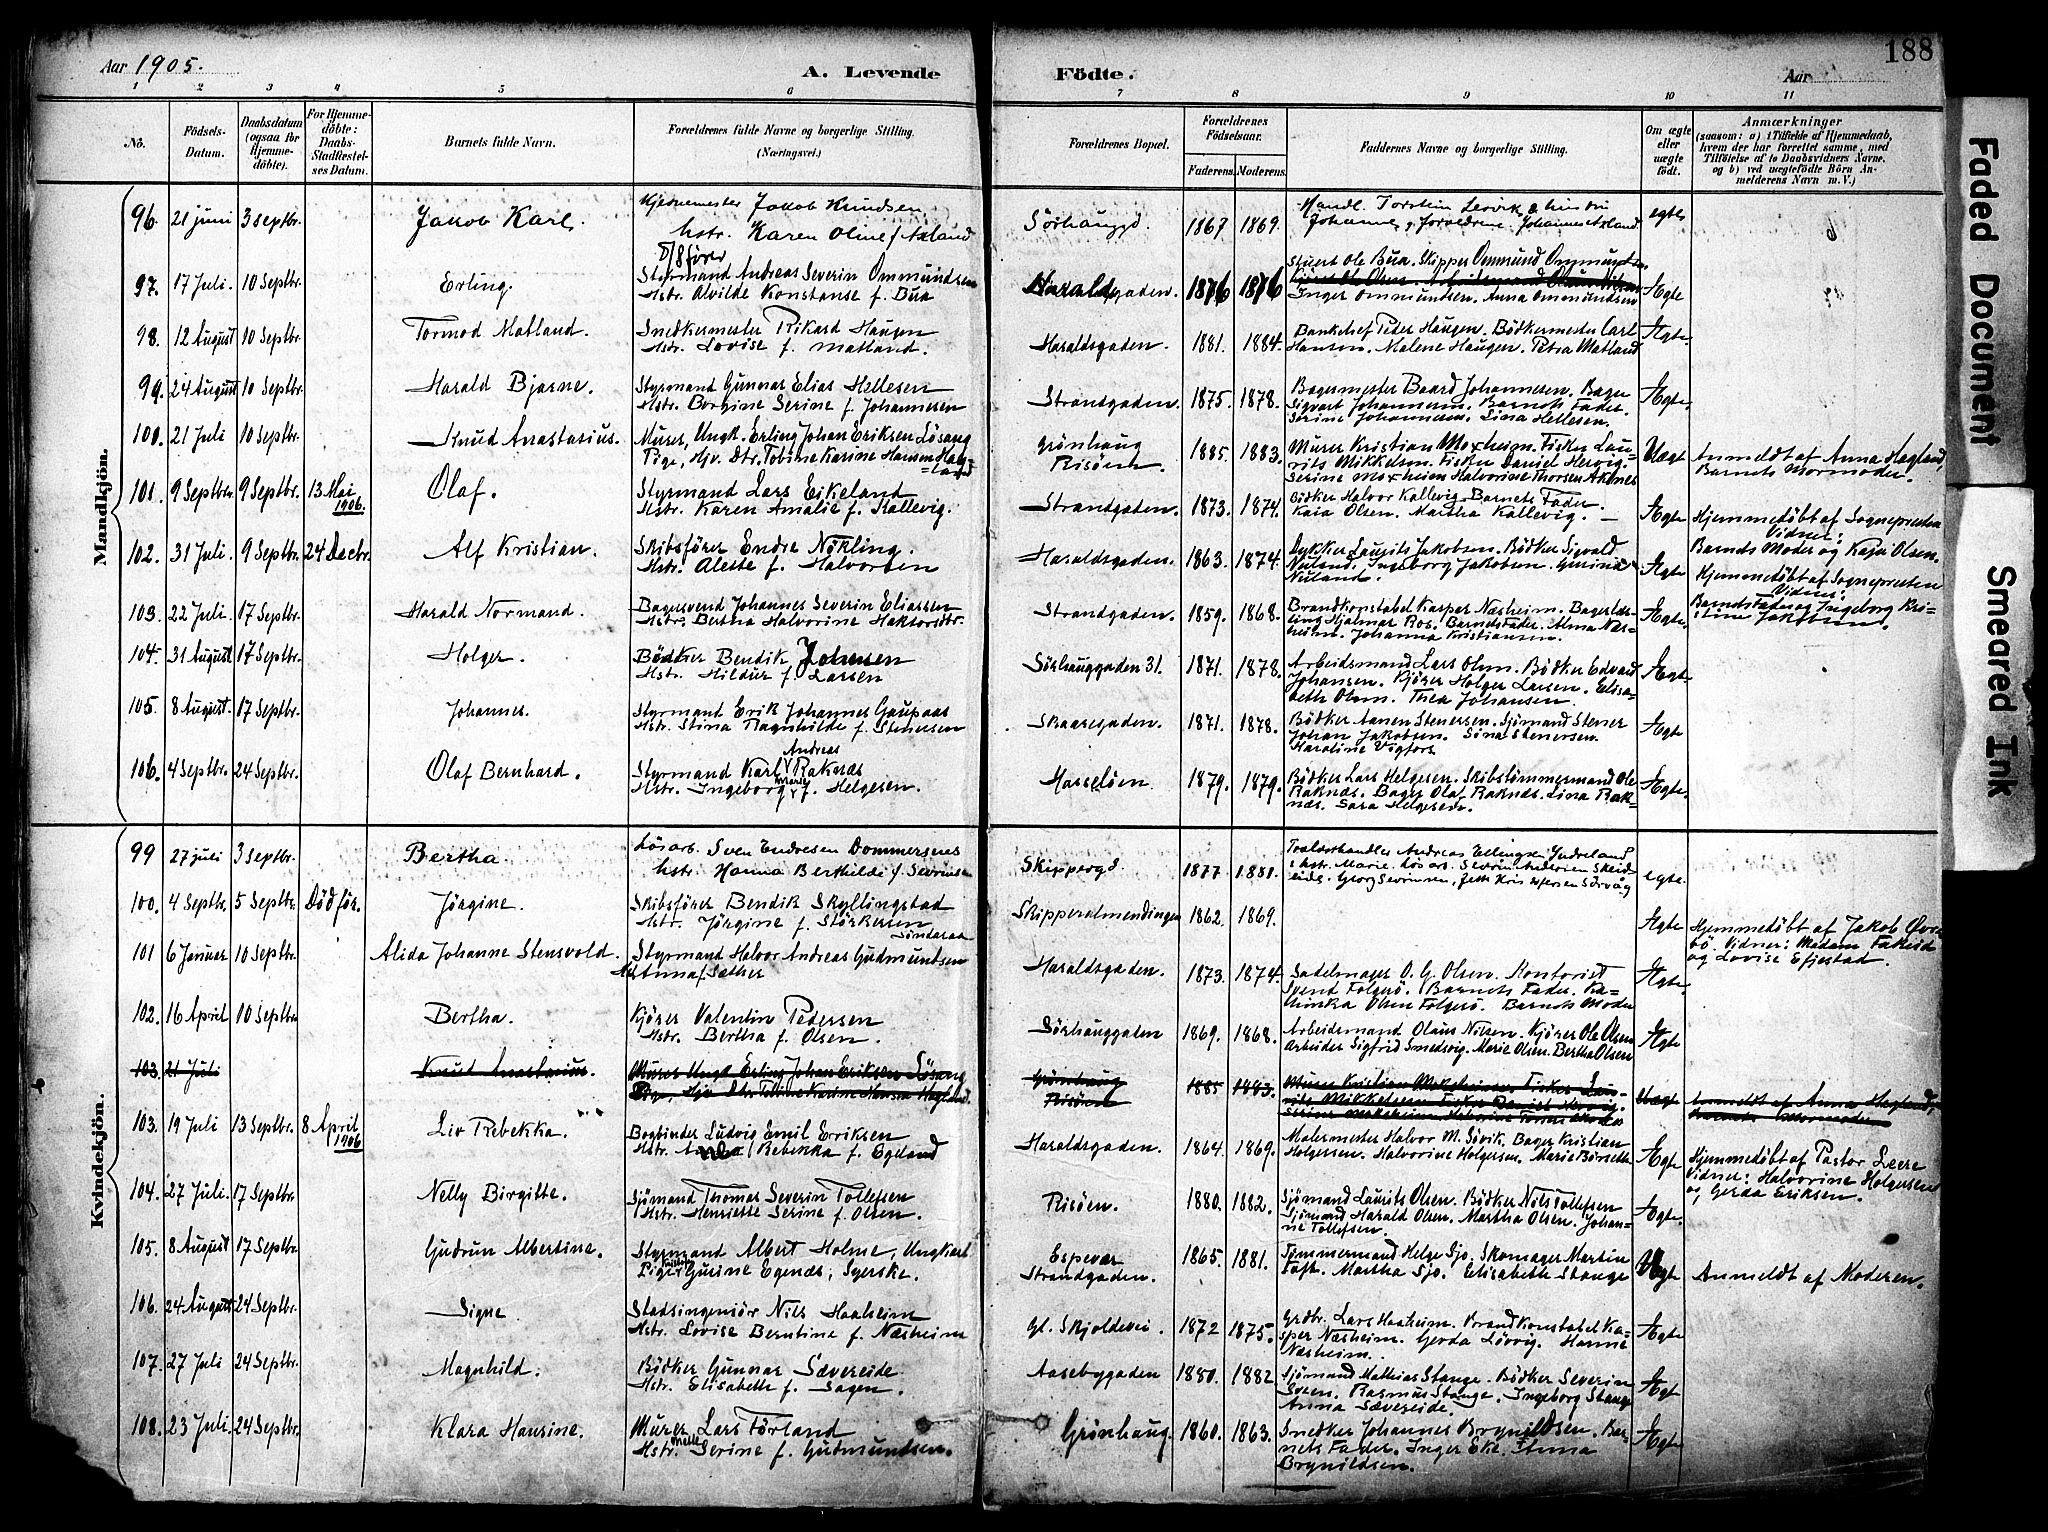 188
Aar 1905.
A. Levende Födte.
Aar
1 2 3 4 5 6 7 8 9 10 11
No.
Födsels-Datum.
Daabsdatum (ogsaa for Hjemmedöbte).
For Hjemmedöbte: Daabs-Stadfæstelses Datum.
Barnets fulde Navn.
Forældrenes fulde Navne og borgerlige Stilling. (Næringsvei.)
Forældrenes Bopæl.
Forældrenes Födselsaar.
Faderens. Moderens.
Faddernes Navne og borgerlige Stilling.
Om ægte eller uægte födt.
Anmærkninger
(saasom: a) i Tilfælde af Hjemmedaab, hvem der har forrettet samme, med Tilföielse af to Daabsvidners Navne, og b) ved uægtefödte Börn Anmelderens Navn m. V.)
Mandkjön.
96. 21 juni 3 septbr. Jakob Karl. Jakob Knudsen
hstr. Karen Oline f Axland Sörhauggd. 1867 1869. Handl. Torstein
Johanne, Forældrene. Johannes Axland. egte
D/S fører
97. 17 Juli. 10 Septbr. Erling. Styrmand Andreas Severin Ommundsen
Hstr. Alvilde Konstanse f. Bua Haraldsgaden. 1876 1876 Ole Bua. Skipper Ommund Ommundsen
Inger Ommundsen. Anna Ommundsen Ægte
98. 12 August 10 Septbr. Tormod Matland. Snedkermester Rikard Haugen
Hstr. Lovise f. Matland. Haraldsgaden. 1881. 1884. Bankchef Peter Haugen. Bödkermester Carl
Hansen. Malene Haugen. Petra Matland Ægte.
99. 24 August 10 Septbr. Harald Bjarne. Styrmand Gunnar Elias Hellesen
Hstr. Borgine Serine f. Johannesen Strandgaden. 1875. 1878. Bagermester Baard Johannesen. Bager
Sigvart Johannesen. Barnets Fader.
Serine Johannesen. Lina Hellesen. Ægte.
100. 21 Juli 10 Septbr. Knud Anastasius. Murer, Ungk. Erling Johan Eriksen Lösang
Pige, Hjv. Dtr. Tobine Karine Hansen Hagland Grönhaug
Risöen. 1885. 1883. Murer Kristian Moxheim. Fisker Lau-
rits Mikkelsen. Fisker Daniel Hervig.
Serine Moxheim Halvorine Thorsen Aknes Uægt Anmeldt af Anna Hagland,
Barnets Mormoder.
101. 9 Septbr. 9 Septbr. 13 Mai
1906. Olaf. Styrmand Lars Eikeland
Hstr. Karen Amalie f. Kallevig. Strandgaden. 1873. 1874. Bödker Halvor Kallevig. Barnets Fader.
Kaia Olsen. Martha Kallevig. Ægte Hjemmedöbt af Sognepresten
Vidner:
Barnets Moder og Kaja Olsen.
102. 31 Juli. 9 Septbr. 24 Decbr. Alf Kristian. Skibsförer Endre Nökling.
Hstr. Alette f. Halvorsen Haraldsgaden. 1863. 1874. Dykker Laurits Jakobsen. Bödker Sigvald
Nuland. Ingeborg Jakobsen. Gurina
Nuland. Ægte Hjemmedöbt af Sognepresten
Vidner:
Barnets Fader og Ingeborg Kri-
stine Jakobsen.
103. 22 Juli. 17 Septbr. Harald Normand. Bagersvend Johannes Severin Eliassen
Hstr. Bertha Halvorine Haktorsdtr. Strandgaden. 1859. 1868. Brandkonstabel Kasper Næsheim. Bagerlær-
ling Hjalmar Ros. Barnets Fader. Alma Næs-
heim. Johanna Kristiansen. Ægte.
104. 31 August 17 Septbr. Holger. Bödker Bendik Johnsen
Hstr. Hildur f. Larsen Sörhauggaden 31. 1871. 1878. Arbeidsmand Lars Olsen. Bödker Edvard
Johansen. Kjörer Holger Larsen. Elisa-
beth Olsen. Thea Johansen. Ægte.
105. 8 August. 17 Septbr. Johannes. Styrmand Erik Johannes Gaupaas
Hstr. Stina Ragnhilde f. Stenersen Skaaregaden. 1871. 1878. Bödker Aanen Stenersen. Sjömand Stener
Johan Jakobsen. Sina Stenersen.
Haraline Vigfors Ægte
106. 4 Septbr. 24 Septbr. Olaf Bernhard. Styrmand Karl Andreas Raknæs
Hstr. Ingeborg Marie f. Helgesen. Hasselöen. 1879. 1879. Bödker Lars Helgesen. Skibstömmermand Ole
Raknæs. Bager Olaf Raknæs. Lina Rak-
næs. Sara Helgesen. Ægte.
Kvindekjön.
99 27 juli 3 septbr. Bertha. Lösarb. Sven Endresen Dommersnes
hstr. Hanna Berthilde f. Sevrinsen Skippergd. 1877 1881. Andreas Ellingsen Yndreland
hstr. Marie
egte.
100. 4 Septbr. 5 Septbr. Död för. Jörgine. Skibsförer Bendik Skyllingstad
Hstr. Jörgine f. Störkersen
Söndaraa Skipperalmendingen 1862. 1869. Ægte Hjemmedöbt af Jakob
bö. Vidner: Madam
og Lovise Efjestad.
101 6 Januar 10 Septbr. Alida Johanne Stensvold. Styrmand Halvor Andreas Gudmundsen
Anna f Sæther Haraldsgaden. 1873. 1874. Sadelmager O. G. Olsen. Kontorist
Svend Folgerö. Barnets Fader. Ka-
thinka Olsen Folgerö. Barnets Moder Ægte.
102. 16 April 10 Septbr Bertha. Kjörer Valentin Pedersen
Hstr. Bertha f. Olsen. Sörhauggaden 1869. 1868. Arbeidsmand Olaus Nilsen. Kjörer Ole Olsen
Arbeider Sigfrid Smedsvig. Marie Olsen. Bertha Olsen Ægte
103. 21 Juli Knud Anastasius. Murer Ungk Erling Johan Eriksen Lösang
Pige, Hjv Dtr Tobine Karine Hansen Hagland. Grönhaug
Risöen 1885 1883. Murer Kristian Moksheim. Fisker Lau-
rits Mikkelsen Fisker Daniel Hervig.
Uægt Anmeldt af Anna Hagland,
Barnets Mormoder
103. 19 Juli 13 Septbr. 8 April
1906 Liv Rebekka. Bogbinder Ludvig Emil Eriksen
Hstr. Rebekka f. Egeland Haraldsgaden. 1864. 1869. Malermester Halvor M. Sövik. Bager Kristian
Holgersen. Halvorine Holgersen. Marie Börseth Ægte Hjemmedöbt af Pastor Leere
Vidner: Halvorine Holgersen
og Gerda Eriksen.
104. 27 Juli. 17 Septbr. Nelly Birgitte. Sjömand Thomas Severin Tollefsen
Hstr. Henriette Serine f. Olsen. Risöen. 1880. 1882. Sjömand Laurits Olsen. Bödker Nils Tollefsen
Sjömand Harald Olsen. Martha Olsen. Johan-
ne Tollefsen. Ægte.
105. 8 August 17 Septbr. Gudrun Albertine. Styrmand Albert Holme, Ungkarl
Pige Gurine Egenæs, Syerske. Espevær
Strandgaden. 1865. 1881. Tömmermand Helge Sjo. Skomager Martin
Toft. Martha Sjo. Elisabeth Stange Uægt Anmeldt af Moderen.
106. 24 August. 24 Septbr. Signe Stadsingeniör Nils Haaheim
Hstr. Lovise Berntine f. Næsheim Gl. Skjoldevei. 1872 1875. Grdbr. Lars Haaheim. Brandkonstabel Ka-
sper Næsheim. Gerda Lövvig. Hanna
Næsheim. Ægte
107. 27 Juli 24 Septbr. Magnhild. Bödker Gunnar Sævereide
Hstr. Elisabeth f. Sagen. Aasebygaden 1880. 1882 Sjömand Mathias Stange. Bödker Severin
Sveen. Rasmus Stange. Ingeborg Stange
Anna Sævereide. Ægt
108. 23 Juli. 24 Septbr. Klara Hansine. Murer Lars Förland
Hstr. Serine f. Gudmundsen. Grönhaug. 1860. 1863. Snedker Johannes Brynildsen. Bar-
nets Fader. Inger Eke. Anna
Brynildsen. Ægte
Faded Document
Smeared Ink